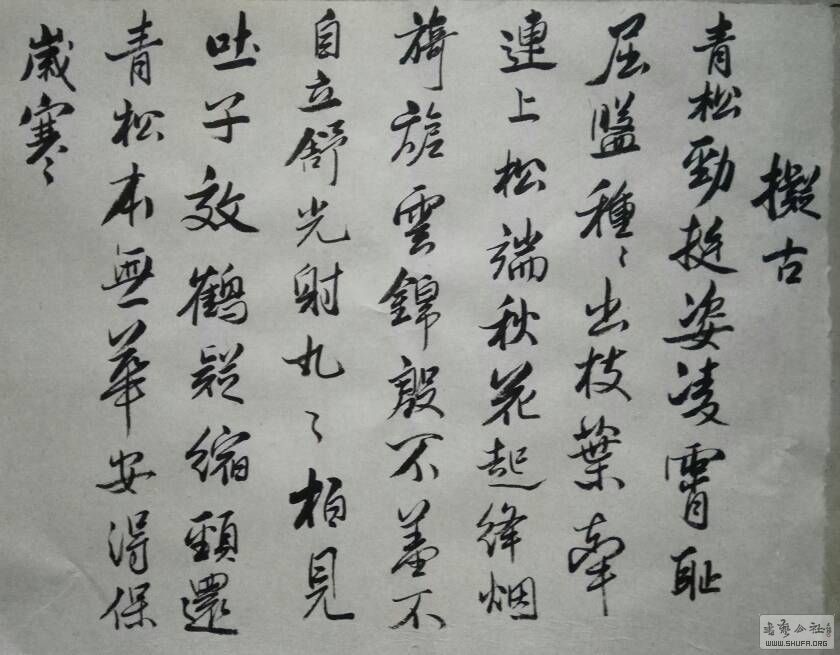 擬古
青松勁挺姿凌霄恥
屈盤種〻出枝葉牽
連上松端秋花起絳烟
旖旎雲錦殷不羞不
自立舒光射丸〻柏見
吐子效鶴疑縮頸還
青松本無華安得保
歲寒〻
书艺公社
WWW.SHUFA.ORG